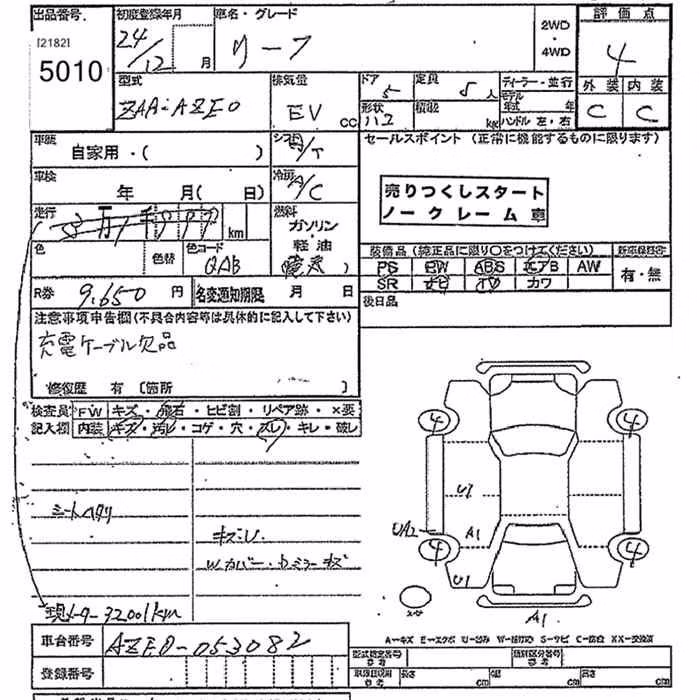 出品番号 初度登録年月 車名・グレード 2WD・4WD 評価点
[2182] 5010
24/12 月 リーフ 4
外装 内装
C C
型式 排気量 ドア 定員 ディーラー・並行
ZAA-AZE0 EV CC 5 5人
形状 積載 モデル年式 年
ハコ kg ハンドル 左・右
車歴 自家用・( ) シフト /T
セールスポイント (正常に機能するものに限ります)
車検 年 月( 日) 冷房 A/C
売りつくしスタート
ノークレーム車
走行 km 燃料 ガソリン・軽油
色 色替 色コード QAB
装備品 (純正品に限り○をつけてください)
PS PW ABS エアB AW 有・無
SR ナビ TV カワ
R券 9,650 円 名変通知期限 月 日
後日品
注意事項申告欄(不具合内容等は具体的に記入して下さい)
充電ケーブル欠品
修復歴 有 (箇所 )
検査員記入欄 FW キズ・飛石・ヒビ割・リペア跡・×要
内装 キズ・汚レ・コゲ・穴・スレ・キレ・破レ
4 4
U1
シートヘタリ
UA2 A1
キズU
Wカバー・カミラーキズ
4 4
U1
現メーター32001km
A1
A-キズ E-エクボ U-凹み W-補修跡 S-サビ C-腐食 XX-交換済
車台番号 AZE0-053082
型式指定番号 参考 類別区分番号 参考
登録番号
長さ cm 幅 cm 高さ cm